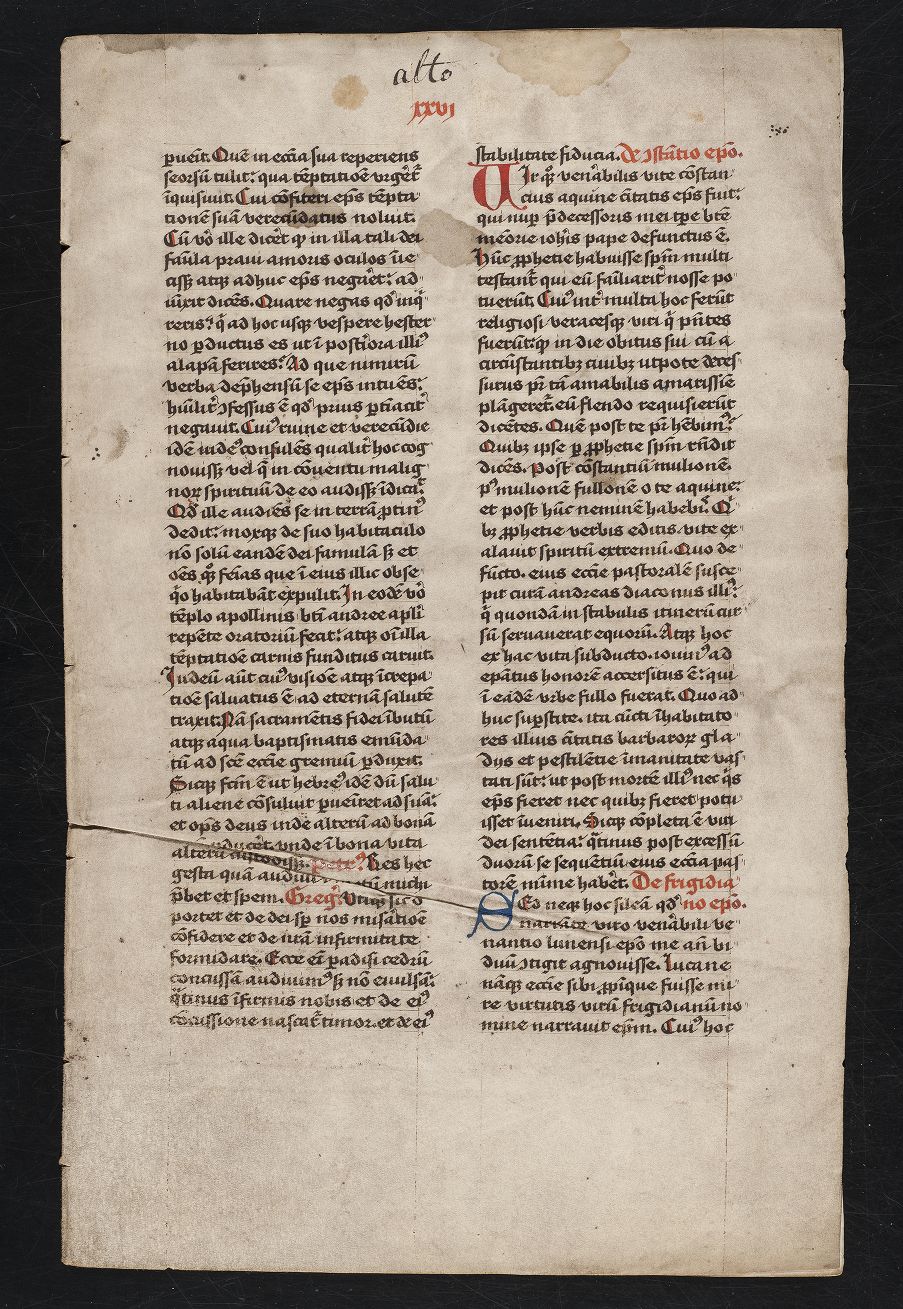 alto
xxvi
ꝑuēit. Quē in ecc̄ia sua reperiens
seorsū tulit: qua tēptatiōe vrgēt̄
īquisiuit. Cui cōfiteri ep̄s tēpta-
tionē suā verecūdatus noluit.
Cū v̄o ille dicēt ꝙ in illa tali dei
famla praui amoris oculos īie-
cissꝫ atqꝫ adhuc ep̄s negāet: ad-
iūxit dicēs. Quare negas qd̓ īq̄-
reris? q̄ ad hoc usqꝫ vespere hester-
no ꝑductus es ut ī posteriora illiꝰ
alapā ferires. Ad que nimirū
verba dep̄hensū se ep̄s intuēs:
hūilit̓ ↄfessus ē qd̓ prius ꝑtiacit̓
negauit. Cuiꝰ ruine et verecūdie
idē iudeꝰ consulēs qualit̓ hoc cog-
nouissꝫ vel q̄ in cōuentu malig-
noꝝ spirituū de eo audissꝫ īdicāt.
Qd̓ ille audiēs se in terrā ꝓtinꝰ
dedit: moxqꝫ de suo habitaculo
nō solū eandē dei famulā sꝫ et
oēs qꝫ feīas que ī eius illic obse-
q̄o habitabāt expulit. In eodē v̄o
tēplo apollinis btī andree apli̅
repēte oratoriū fecit: atqꝫ oī illa
tēptatiōe carnis funditus caruit.
Iudeū aūt cuiꝰ visiōe atqꝫ īcrepa-
tiōe saluatus ē ad eternā salutē
traxit. Nā sacramētis fidei ībutū
atqꝫ aqua baptismatis emūda-
tū ad scē ecc̄ie gremiū ꝑduxit.
Sicqꝫ fcm̄ ē ut hebreꝰ idē dū salu-
ti aliene cōsuluit ꝑuēiret ad suā:
et op̄s deus inde alterū ad bonā
ꝑducēt. vnde ī bona vita
alterū custodissꝫ. Petrꝰ. Res hec
gesta quā audiui michi
p̄bet et spem. Greg̓. Vtiqꝫ sic o-
portet et de dei sꝑ nos misatiōe
cōfidere et de nrā infirmitate
formidare. Ecce eī ꝑadisi cedrū
concussam audiuimꝰ sꝫ nō euulsā:
q̄tinus īfirmis nobis et de eiꝰ
cōcussione nascat̄ timor. et de eiꝰ
stabilitate fiducia. De ↄstātio ep̄o.
Uir qꝫ venābilis vite cōstan-
cius aquine cītatis ep̄s fuit:
qui nuꝑ p̄decessoris mei tꝑe btē
mēorie ioh̄is pape defunctus ē.
Hūc ꝓphetie habuisse spm̄ multi
testant̄ qui eū familiarit̓ nosse po-
tuerūt. Cuiꝰ int̓ multa hoc ferūt
religiosi veracesqꝫ viri q̄ p̄ntes
fuerūt: ꝙ in die obitus sui cū a
circūstantibꝫ ciuibꝫ utpote deces-
surus pr̄ tā amabilis amarissīe
plāgeret̄. eū flendo requisierūt
dicētes. Quē post te pr̄ hēbimꝰ?
Quibꝫ ipse ꝑ ꝓphetie spm̄ rn̄dit
dicēs. Post cōstantiū mulionē.
pꝰ mulionē fullonē o te aquine:
et post hūc neminē habebꝭ. Q̄-
bꝫ ꝓphetie verbis editis. vite ex-
alauit spiritū extremū. Quo de-
fūcto. eius ecc̄ie pastoralē susce-
pit curā andreas diaconus illiꝰ:
q̄ quondā in stabulis itinerū cur-
sū seruauerat equorū. Atqꝫ hoc
ex hac vita subducto. iouinꝰ ad
epātus honorē accersitus ē: qui
ī eadē vrbe fullo fuerat. Quo ad-
huc suꝑstite. ita cūcti īhabitato-
res illius cītatis barbaroꝝ gla-
dijs et pestilētie īmanitate vas-
tati sūt: ut post mortē illiꝰ nec q̄s
ep̄s fieret nec quibꝫ fieret potu-
isset īueniri. Sicqꝫ cōpleta ē viri
dei sentētia: q̄tinus post excessū
duorū se sequētiū eius ecc̄ia pas-
torē mīme habēt. De frigidia-
no ep̄o.
SEd neqꝫ hoc sileā qd̓
narrāte viro venābili ve-
nantio lunensi ep̄o me an̄ bi-
duū ↄtigit agnouisse. Lucane
nāqꝫ ecc̄ie sibi ꝓpīque fuisse mi-
re virtutis virū frigidianū no-
mine narrauit ep̄m. Cuiꝰ hoc